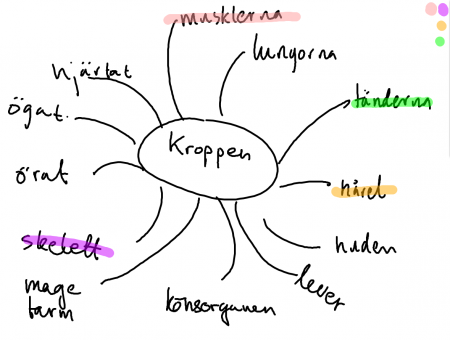 musklerna
lungorna
hjärtat
tänderna
ögat.
Kroppen
örat
håret
skelett
huden
mage
tarm
lever
könsorganen